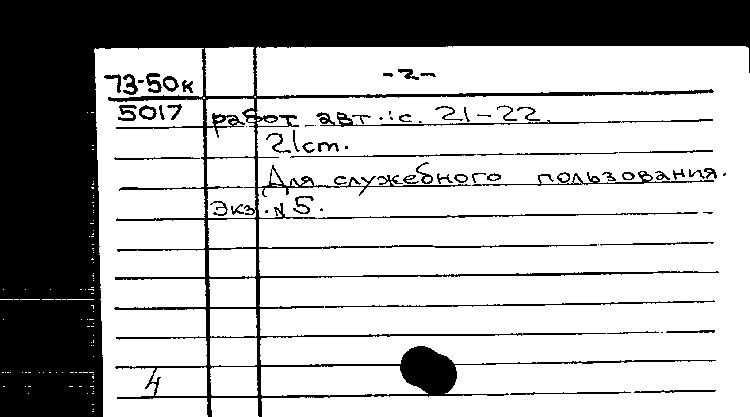 73-50к -2-
5017 работ авт.: с. 21-22.
21 cm.
Для служебного пользования.
Экз. N 5.
4